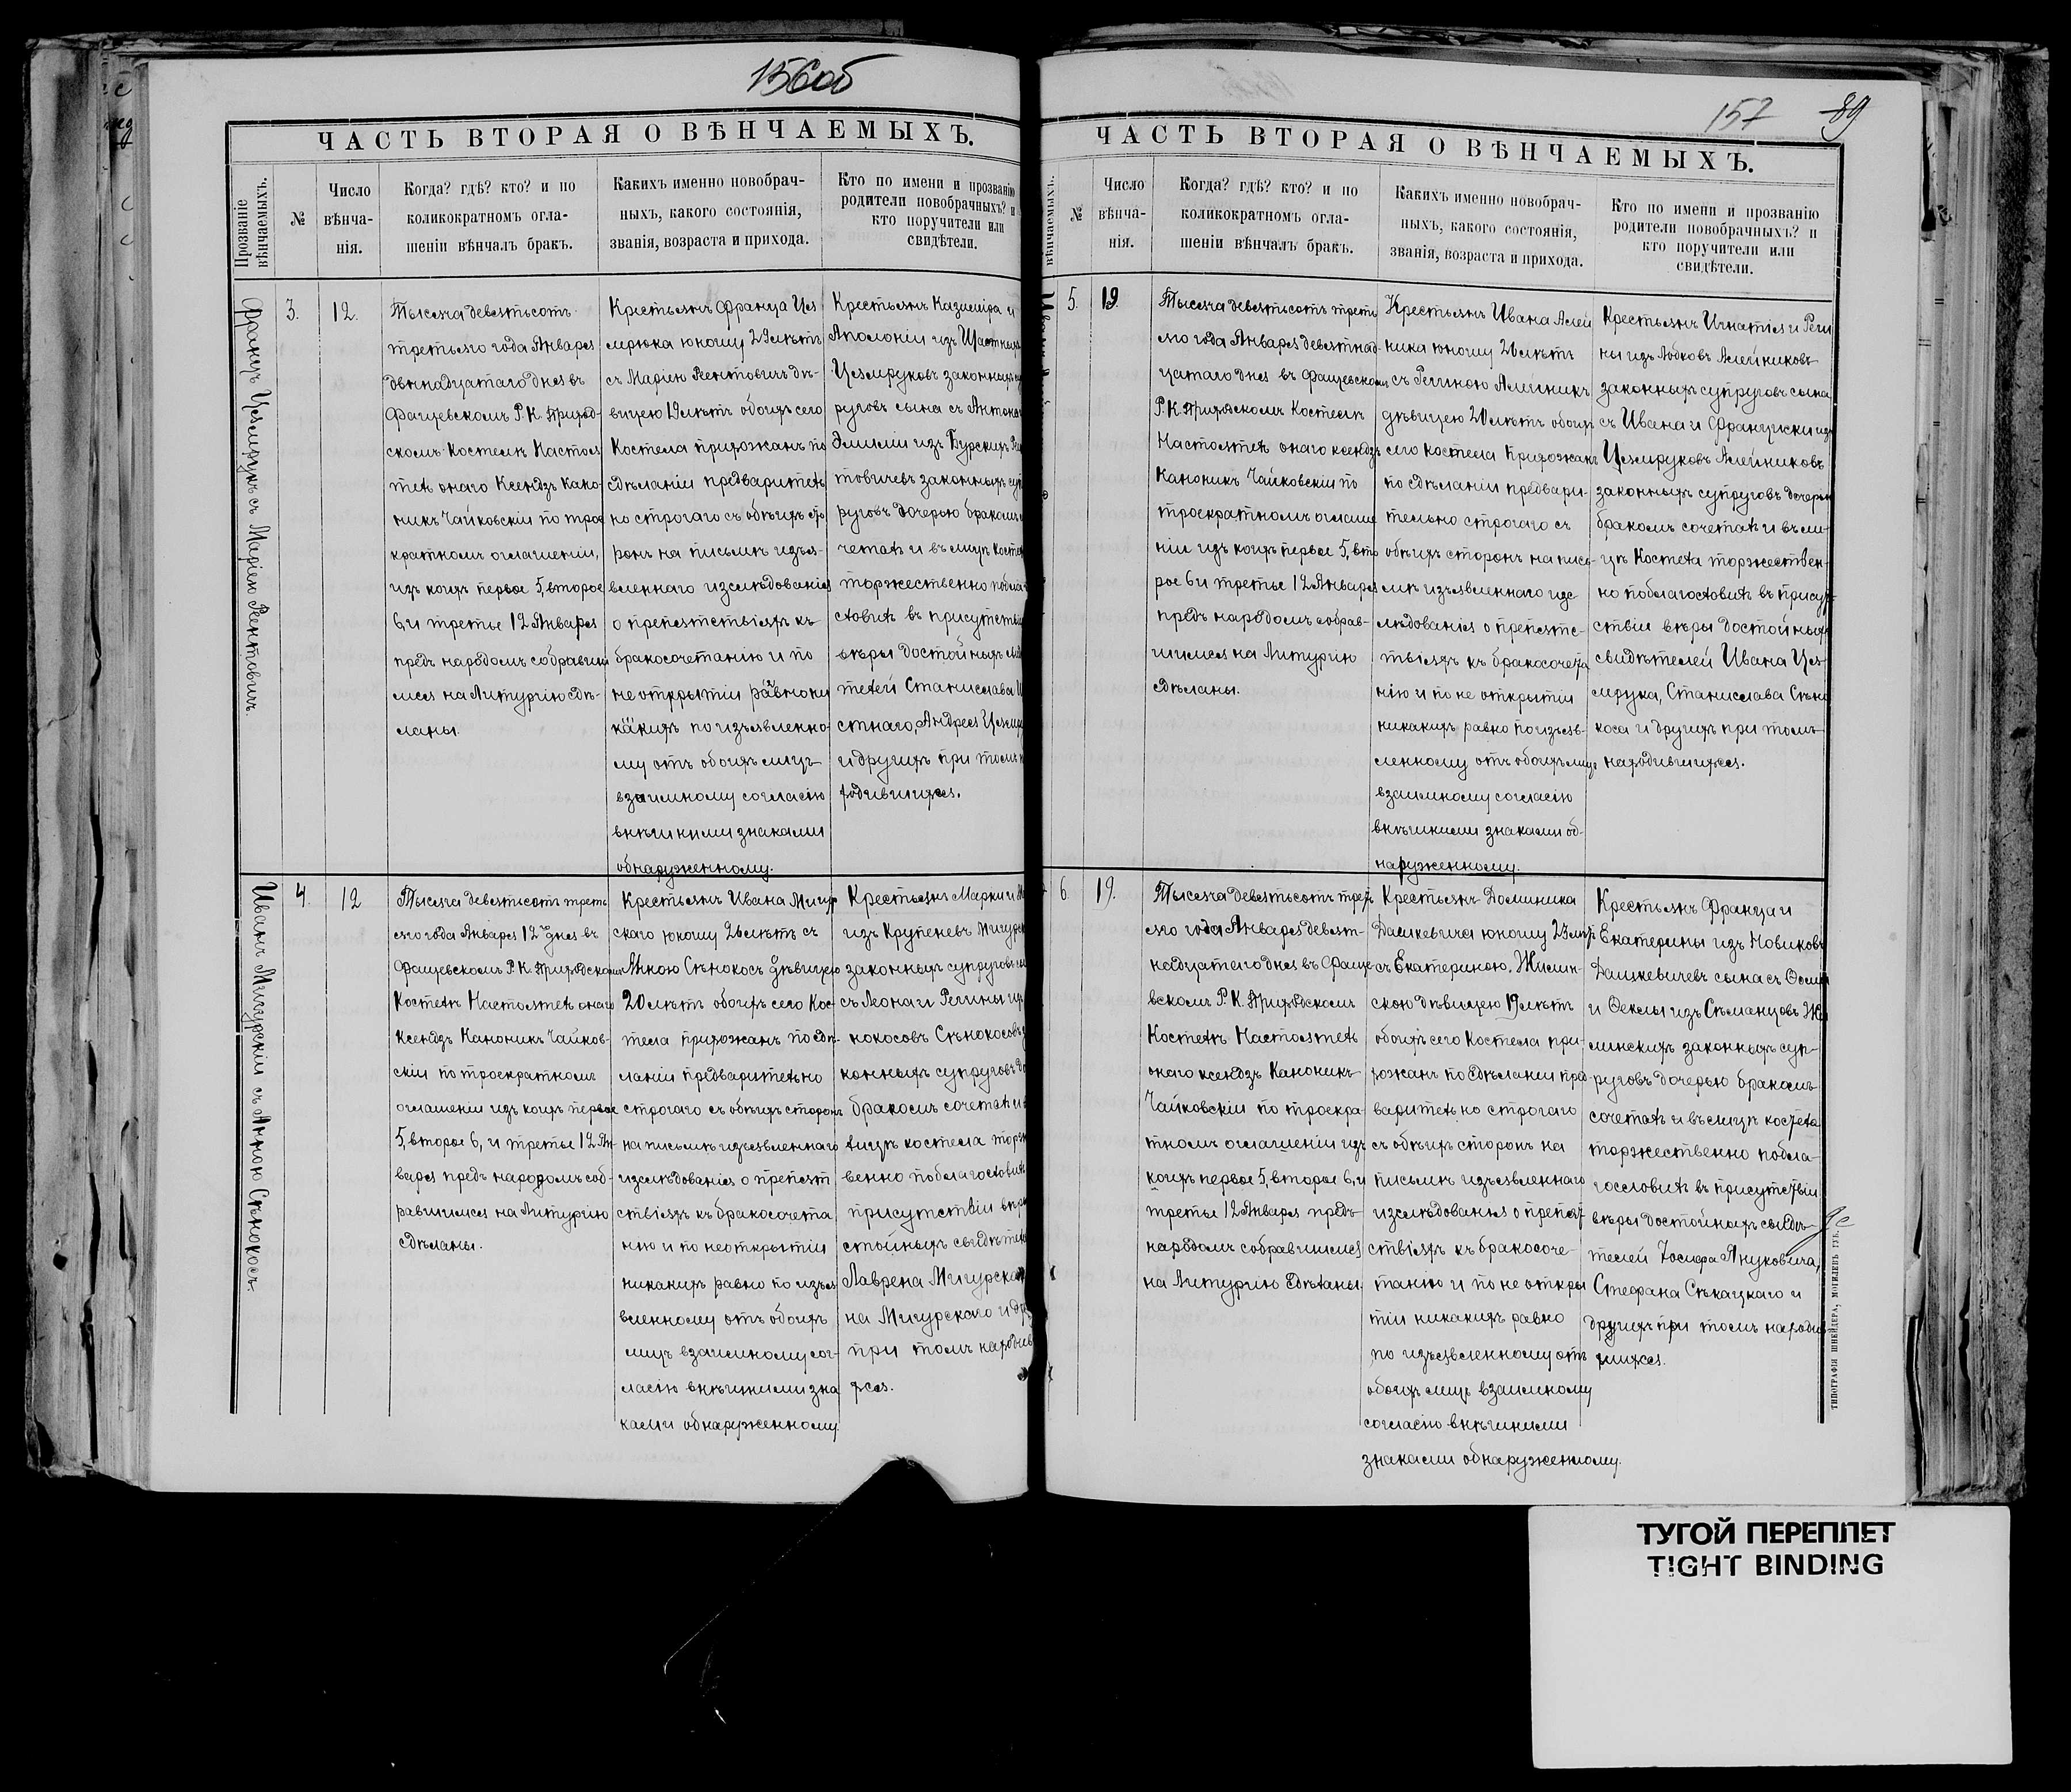 156об
ЧАСТЬ ВТОРАЯ О ВѢНЧАЕМЫХЪ.
Прозваніе вѣнчаемыхъ.
№
Число вѣнча-
нія.
Когда? гдѣ? кто? и по
коликократномъ огла-
шеніи вѣнчалъ бракъ.
Какихъ именно новобрач-
ныхъ, какого состоянія,
званія, возраста и прихода.
Кто по имени и прозванію
родители новобрачныхъ? и
кто поручители или
свидѣтели.
Францъ Цезмрукъ съ Маріею Рентовичъ.
3.
12.
Тысяча девятьсотъ
третьяго года Января
двѣнадцатаго дня въ
Фащевскомъ Р. К. Приход-
скомъ Костелѣ Настоя
тель онаго Ксендзъ Кано-
никъ Чайковскій по трое
кратномъ оглашеніи,
изъ коихъ первое 5, второе
6, и третье 12 Января
предъ народомъ собравши
мся на Литургію сдѣ-
ланы.
Крестьянъ Франца Цез
мрюка юношу 29 лѣтъ
съ Маріею Рентовичъ дѣ-
вицею 19 лѣтъ обоихъ сего
Костела прихожанъ по
сдѣланіи предварительно
но строгаго съ обѣихъ сто
ронъ на письмѣ изъя-
вленнаго изслѣдованія
о препятствіяхъ къ
бракосочетанію и по
не открытіи равно ни
какихъ по изъявленно-
му отъ обоихъ лицъ
взаимному согласію
внѣшними знаками
обнаруженному.
Крестьянъ Казиміра и
Аполоніи изъ Щастныхъ
Цезмруковъ законныхъ су
руговъ сына съ Антона
Эмиліи изъ Бурскихъ Рен
товичевъ законныхъ суп
руговъ дочерью бракомъ
четалъ и въ лицѣ Косте
торжественно поблаг
словилъ въ присутстві
вѣры достойныхъ сви
телей Станислава Щ
стнаго, Андрея Цезмр
и другихъ при томъ н
родившихся.
Иванъ Мигурскій съ Анною Сѣнокосъ.
4.
12
Тысяча девятьсотъ треть
яго года Января 12 го дня въ
Фащевскомъ Р. К. Приходскомъ
Костелѣ Настоятель онаго
Ксендзъ Каноникъ Чайков-
скій по троекратномъ
оглашеніи изъ коихъ первое
5, второе 6, и третье 12 Ян-
варя предъ народомъ соб-
равшимся на Литургію
сдѣланы.
Крестьянъ Ивана Мигур
скаго юношу 26 лѣтъ съ
Анною Сѣнокосъ дѣвицею
20 лѣтъ обоихъ сего Кос-
тела прихожанъ по сдѣ-
ланіи предварительно
строгаго съ обѣихъ сторонъ
на письмѣ изъявленнаго
изслѣдованія о препят
ствіяхъ къ бракосочета
нію и по неоткрытіи
никакихъ равно по изъя
вленному отъ обоихъ
лицъ взаимному сог-
ласію внѣшними зна
ками обнаруженному
Крестьянъ Марки и
изъ Крупеневъ Мигурс
законныхъ супруговъ
съ Леона и Регины изъ
нокосовъ Сѣнокосовъ
конныхъ супруговъ до
бракомъ сочеталъ и
лицѣ костела торж
венно поблагословилъ
присутствіи вѣры
стойныхъ свидѣтел
Лаврена Мигурска
на Мигурскаго и др
при томъ народив
хся.
157
89
ЧАСТЬ ВТОРАЯ О ВѢНЧАЕМЫХЪ.
вѣнчаемыхъ.
№
Число вѣнча-
нія.
Когда? гдѣ? кто? и по
коликократномъ огла-
шеніи вѣнчалъ бракъ.
Какихъ именно новобрач-
ныхъ, какого состоянія,
званія, возраста и прихода.
Кто по имени и прозванію
родители новобрачныхъ? и
кто поручители или
свидѣтели.
5.
19.
Тысяча девятьсотъ треть
яго года Января девятнад-
цатаго дня въ Фащевскомъ
Р. К. Приходскомъ Костелѣ
Настоятель онаго ксендзъ
Каноникъ Чайковскій по
троекратномъ оглаше
ніи изъ коихъ первое 5, вто
рое 6 и третье 12 Января
предъ народомъ собрав-
шимся на Литургію
сдѣланы.
Крестьянъ Ивана Алей
ника юношу 20 лѣтъ
съ Региною Алейникъ
дѣвицею 20 лѣтъ обоихъ
сего костела прихожанъ
по сдѣланіи предвари-
тельно строгаго съ
обѣихъ сторонъ на пись-
мѣ изъявленнаго изс
лѣдованія о препятс-
твіяхъ къ бракосочета
нію и по не открытіи
никакихъ равно по изъяв-
ленному отъ обоихъ лицъ
взаимному согласію
внѣшними знаками об-
наруженному.
Крестьянъ Игнатія и Реги
ны изъ Лобковъ Алейниковъ
законныхъ супруговъ сына
съ Ивана и Француски изъ
Цезмруковъ Алейниковъ
законныхъ супруговъ дочерью
бракомъ сочеталъ и въ ли-
цѣ Костела торжествен-
но поблагословилъ въ присут-
ствіи вѣры достойныхъ
свидѣтелей Ивана Цез-
мрука, Станислава Сѣно
коса и другихъ при томъ
народившихся.
6
19.
Тысяча девятьсотъ треть
яго года Января девят-
надцатаго дня въ Фаще-
вскомъ Р. К. Приходскомъ
Костелѣ Настоятель
онаго ксендзъ Каноникъ
Чайковскій по троекра-
тномъ оглашеніи изъ
коихъ первое 5, второе 6, и
третье 12 Января предъ
народомъ собравшимся
на Литургію сдѣланы.
Крестьянъ Доминика
Дашкевича юношу 23 лѣтъ
съ Екатериною Жилин-
скою дѣвицею 19 лѣтъ
обоихъ сего Костела при-
хожанъ по сдѣланіи пред
варительно строгаго
съ обѣихъ сторонъ на
письмѣ изъявленнаго
изслѣдованія о препят
ствіяхъ къ бракосоче-
танію и по не откры
тіи никакихъ равно
по изъявленному отъ
обоихъ лицъ взаимному
согласію внѣшними
знаками обнаруженному.
Крестьянъ Франца и
Екатерины изъ Новиковъ
Дашкевичевъ сына съ Осипа
и Феклы изъ Сѣманцовъ Жи
линскихъ законныхъ суп-
руговъ дочерью бракомъ
сочеталъ и въ лицѣ костела
торжественно побла-
гословилъ въ присутствіи
вѣры достойныхъ свидѣ-
телей Іосифа Януковича,
Стефана Сѣкацкаго и
другихъ при томъ народив
шихся.
ТИПОГРАФІЯ ШНЕЙДЕРА, МОГИЛЕВЪ ГУБ.
ТУГОЙ ПЕРЕПЛЕТ
TIGHT BINDING